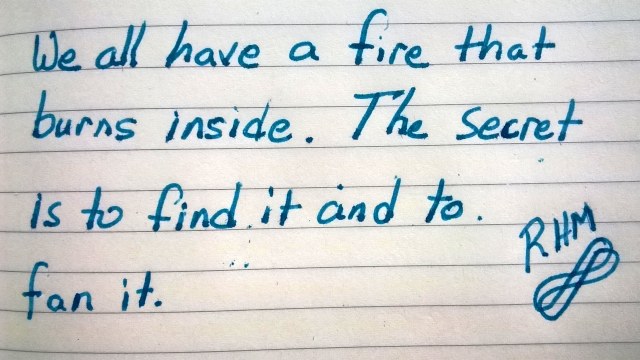 We all have a fire that
burns inside. The secret
is to find it and to.
fan it.
RHM